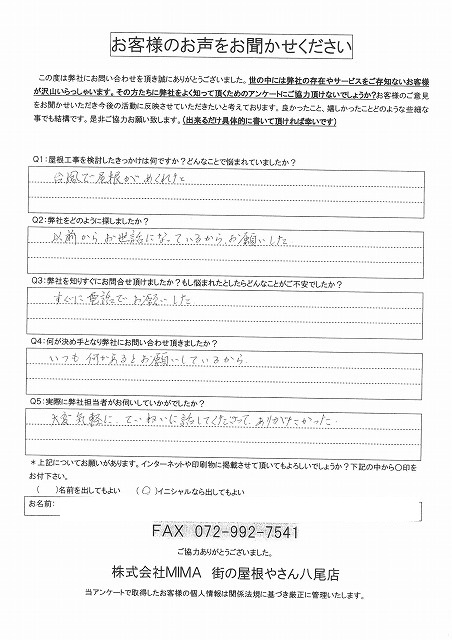 お客様のお声をお聞かせください
この度は弊社にお問い合わせを頂き誠にありがとうございました。世の中には弊社の存在やサービスをご存知ないお客様
が沢山いらっしゃいます。その方たちに弊社をよく知って頂くためのアンケートにご協力頂けないでしょうか?お客様のご意見
をお聞かせいただき今後の活動に反映させていただきたいと考えております。良かったこと、嬉しかったことどのような些細な
事でも結構です。是非ご協力お願い致します。(出来るだけ具体的に書いて頂ければ幸いです)
Q1:屋根工事を検討したきっかけは何ですか?どんなことで悩まれていましたか?
台風で屋根がめくれた
Q2:弊社をどのように探しましたか?
以前からお世話になっているから、お願いした
Q3:弊社を知りすぐにお問合せ頂けましたか?もし悩まれたとしたらどんなことがご不安でしたか?
すぐに電話でお願いした
Q4:何が決め手となり弊社にお問い合わせ頂きましたか?
いつも何かあるとお願いしているから
Q5:実際に弊社担当者がお伺いしていかがでしたか?
大変気軽に、ていねいに話してくださって、ありがたかった。
*上記についてお願いがあります。インターネットや印刷物に掲載させて頂いてもよろしいでしょうか?下記の中から〇印を
お付下さい。
( )名前を出してもよい (〇)イニシャルなら出してもよい
お名前:
FAX 072-992-7541
ご協力ありがとうございました。
株式会社MIMA 街の屋根やさん八尾店
当アンケートで取得したお客様の個人情報は関係法規に基づき厳正に管理いたします。